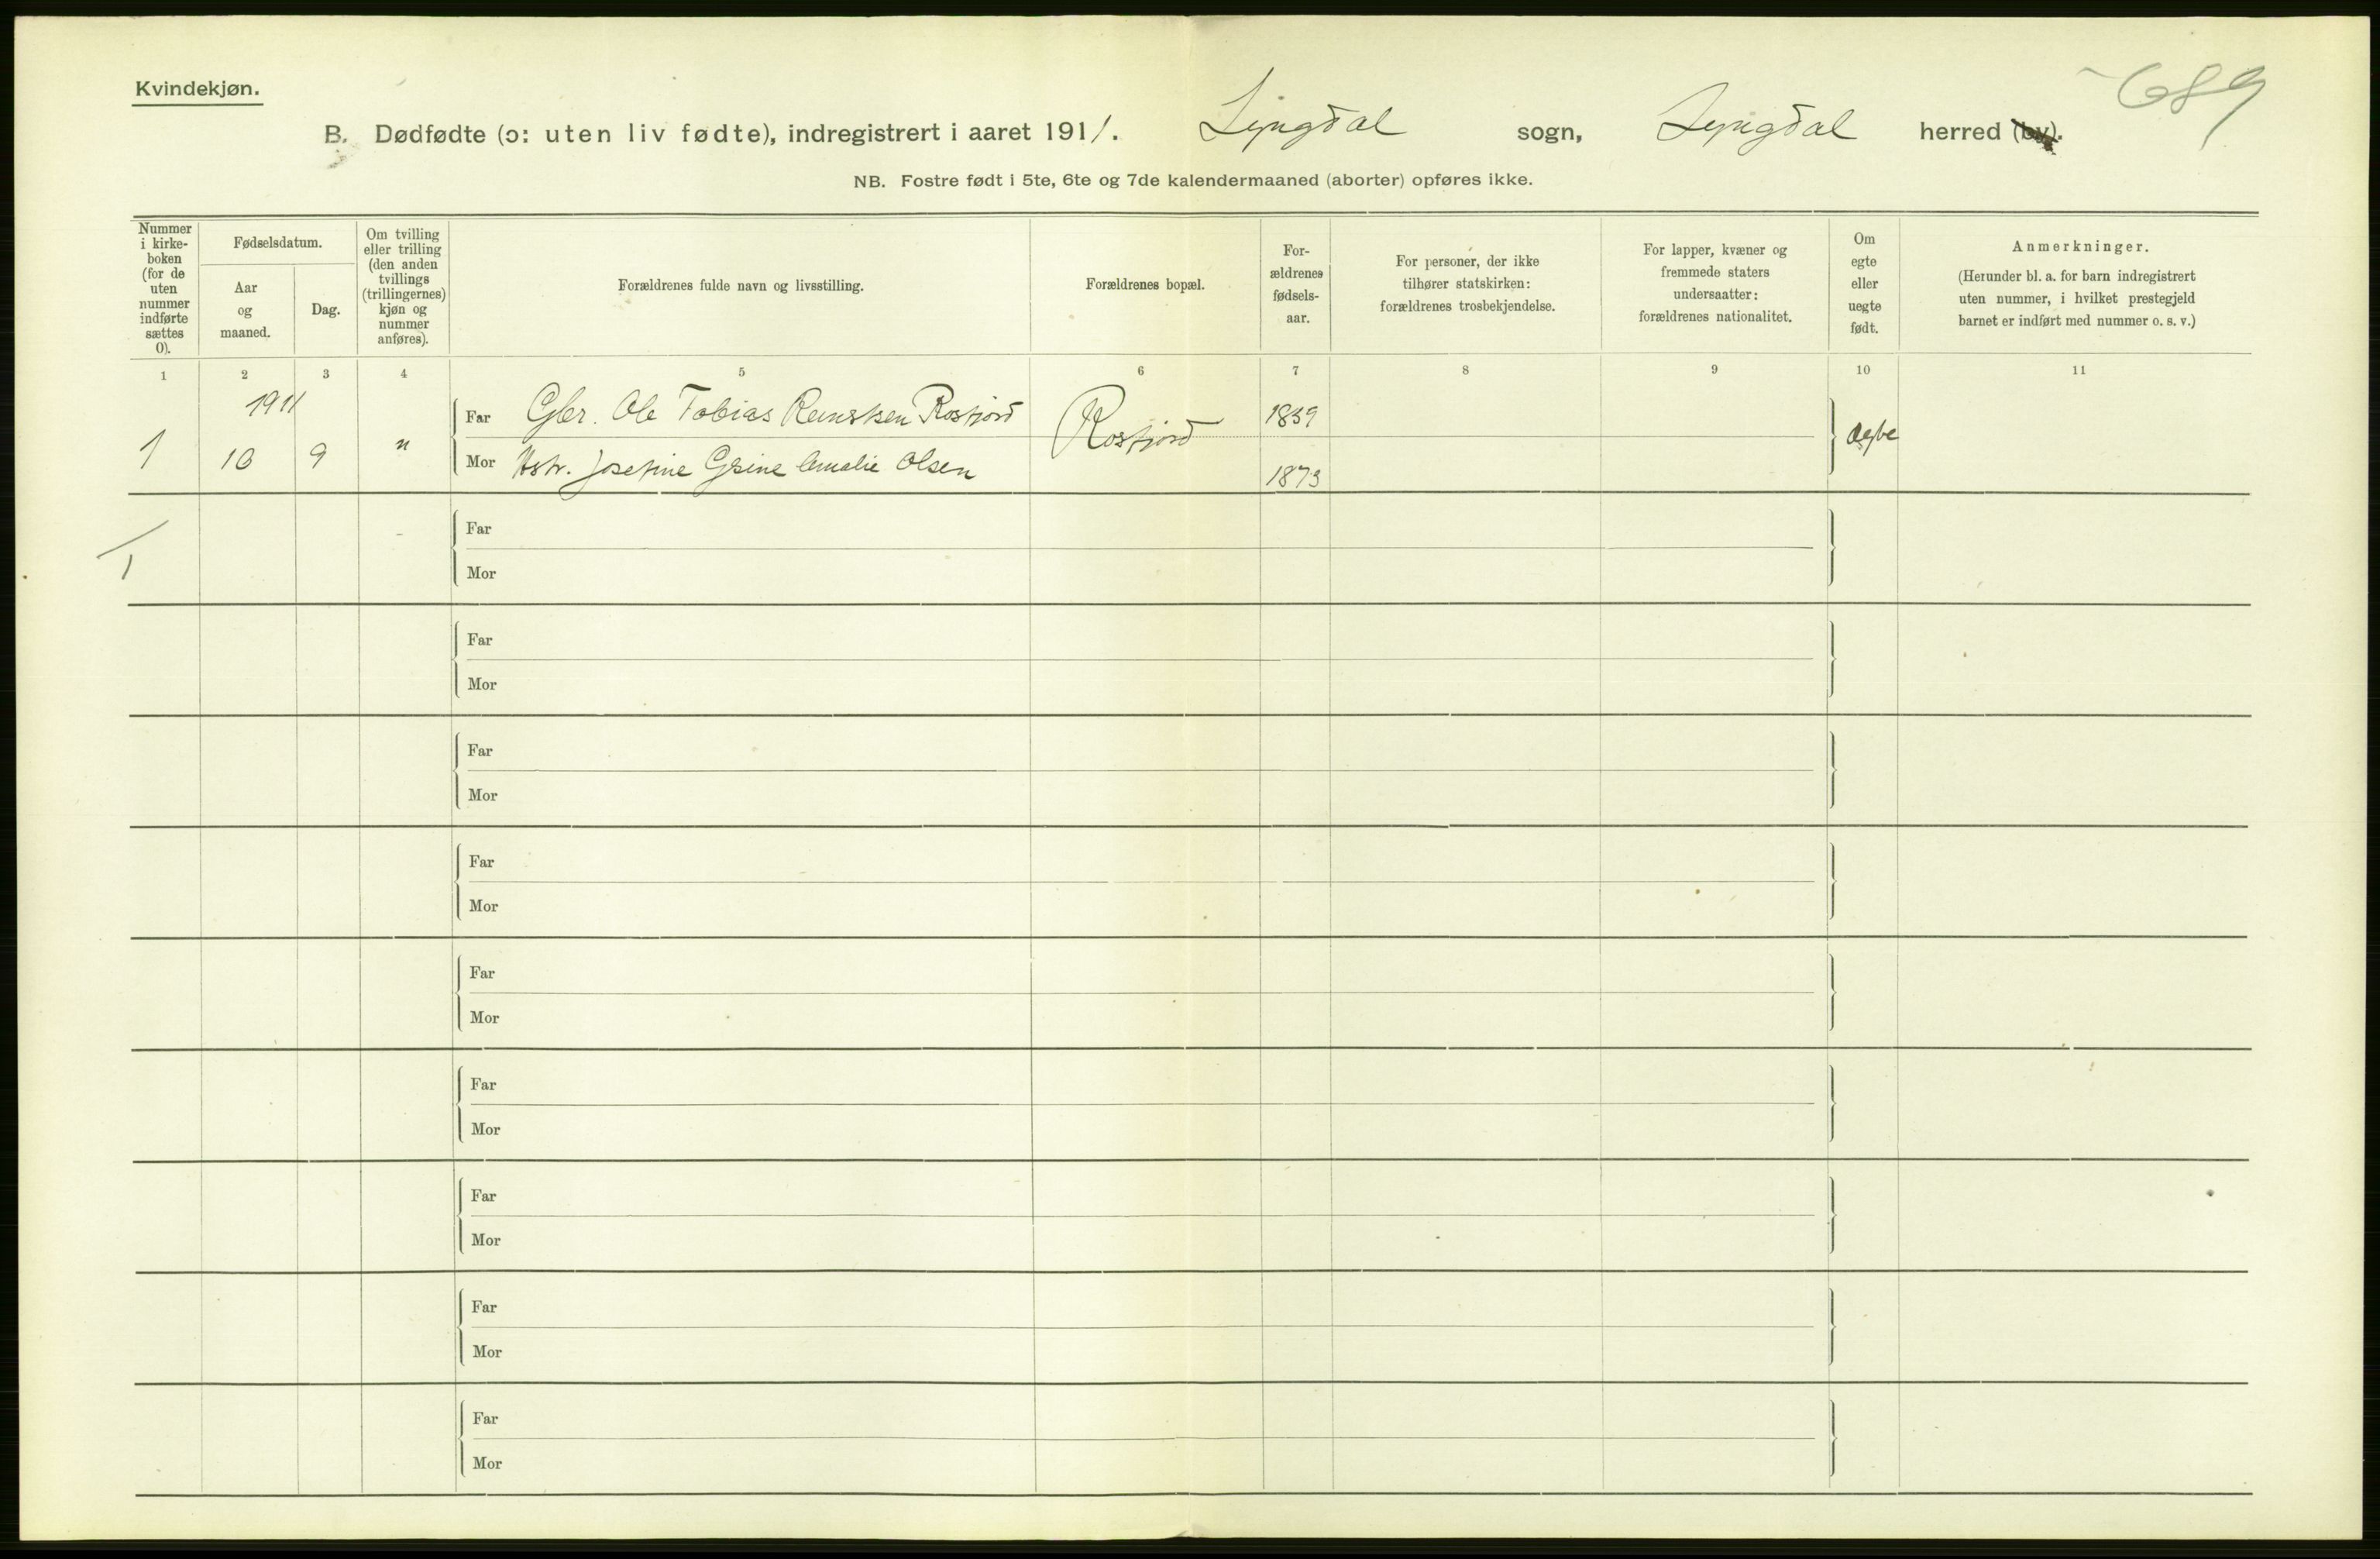 Kvindekjøn.
689
B. Dødfødte (ɔ: uten liv fødte), indregistrert i aaret 1911. Lyngdal sogn, Lyngdal herred (by).
NB. Fostre født i 5te, 6te og 7de kalendermaaned (aborter) opføres ikke.
Nummer
i kirke-
boken
(for de
uten
nummer
indførte
sættes
0).
Fødselsdatum.
Aar
og
maaned.
Dag.
Om tvilling
eller trilling
(den anden
tvillings
(trillingernes)
kjøn og
nummer
anføres).
Forældrenes fulde navn og livsstilling.
Forældrenes bopæl.
For-
ældrenes
fødsels-
aar.
For personer, der ikke
tilhører statskirken:
forældrenes trosbekjendelse.
For lapper, kvæner og
fremmede staters
undersaatter:
forældrenes nationalitet.
Om
egte
eller
uegte
født.
Anmerkninger.
(Herunder bl. a. for barn indregistrert
uten nummer, i hvilket prestegjeld
barnet er indført med nummer o. s. v.)
1 2 3 4 5 6 7 8 9 10 11
1911
Far Gbr. Ole Tobias Rosfjord 1859
1 10 9 " Rosfjord
Mor Hstr. Josefine Gsine Amalie Olsen 1873
Far
Mor
Far
Mor
Far
Mor
Far
Mor
Far
Mor
Far
Mor
Far
Mor
Far
Mor
Far
Mor